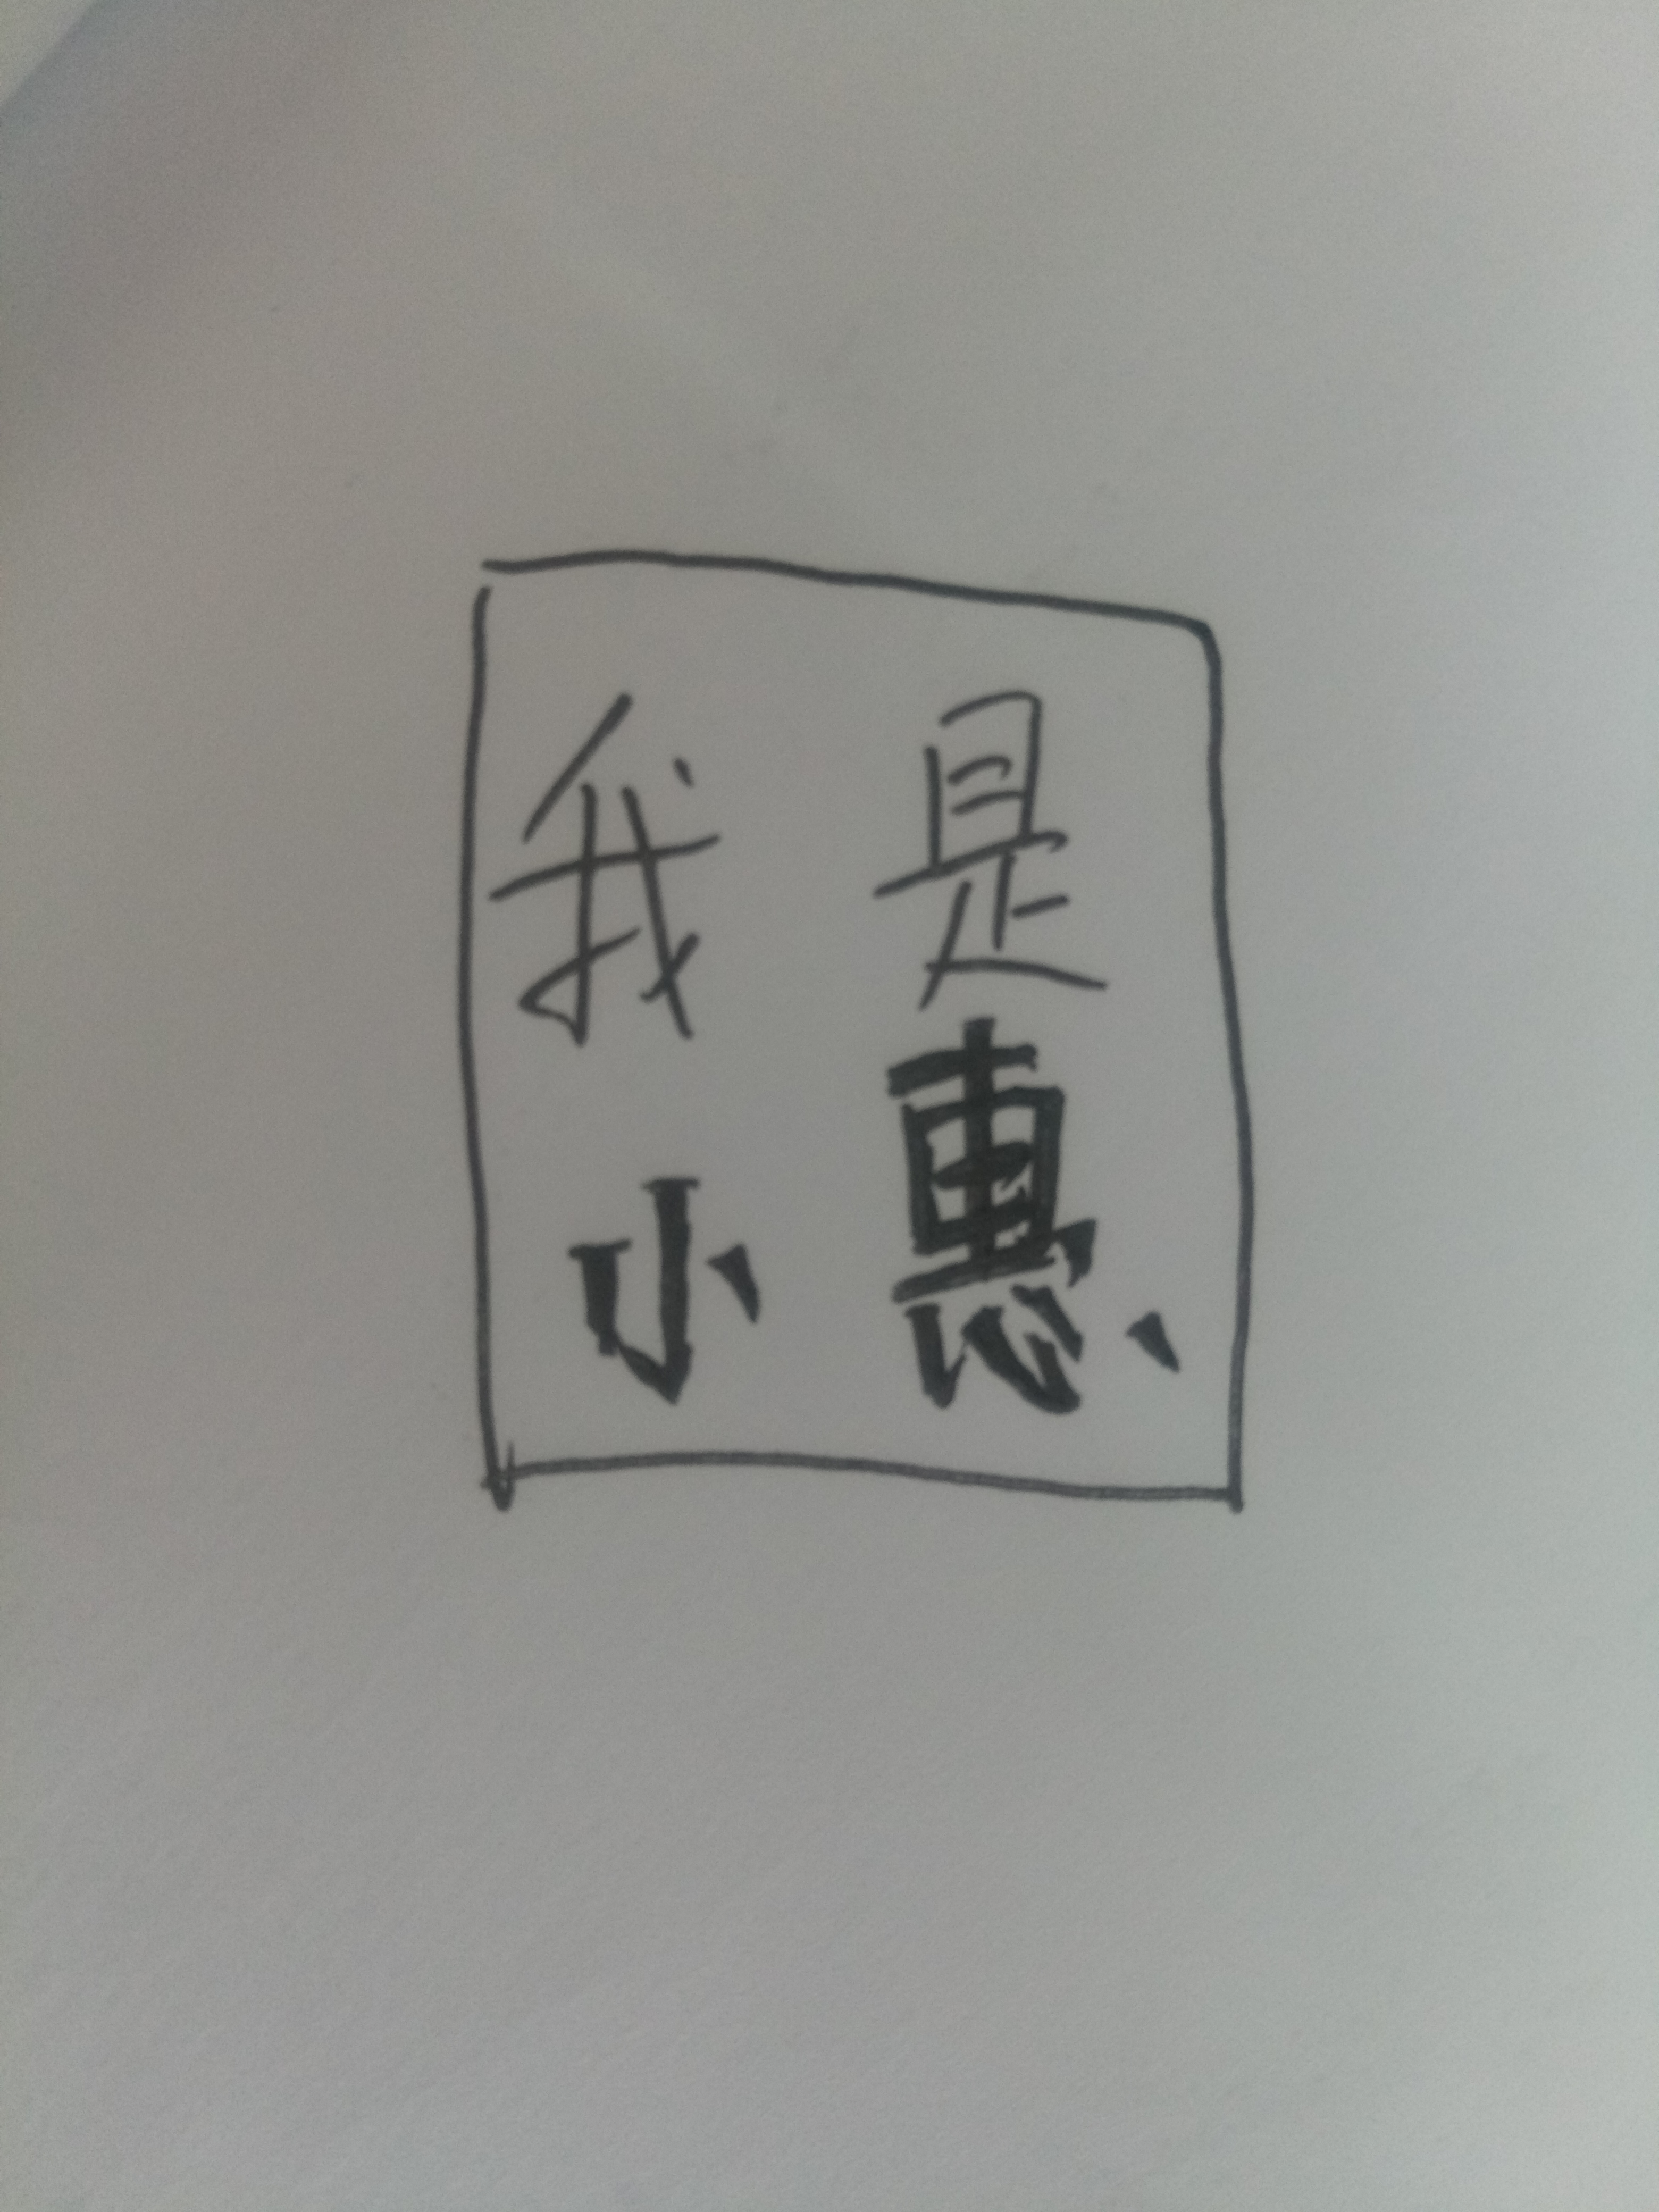 我是
小惠